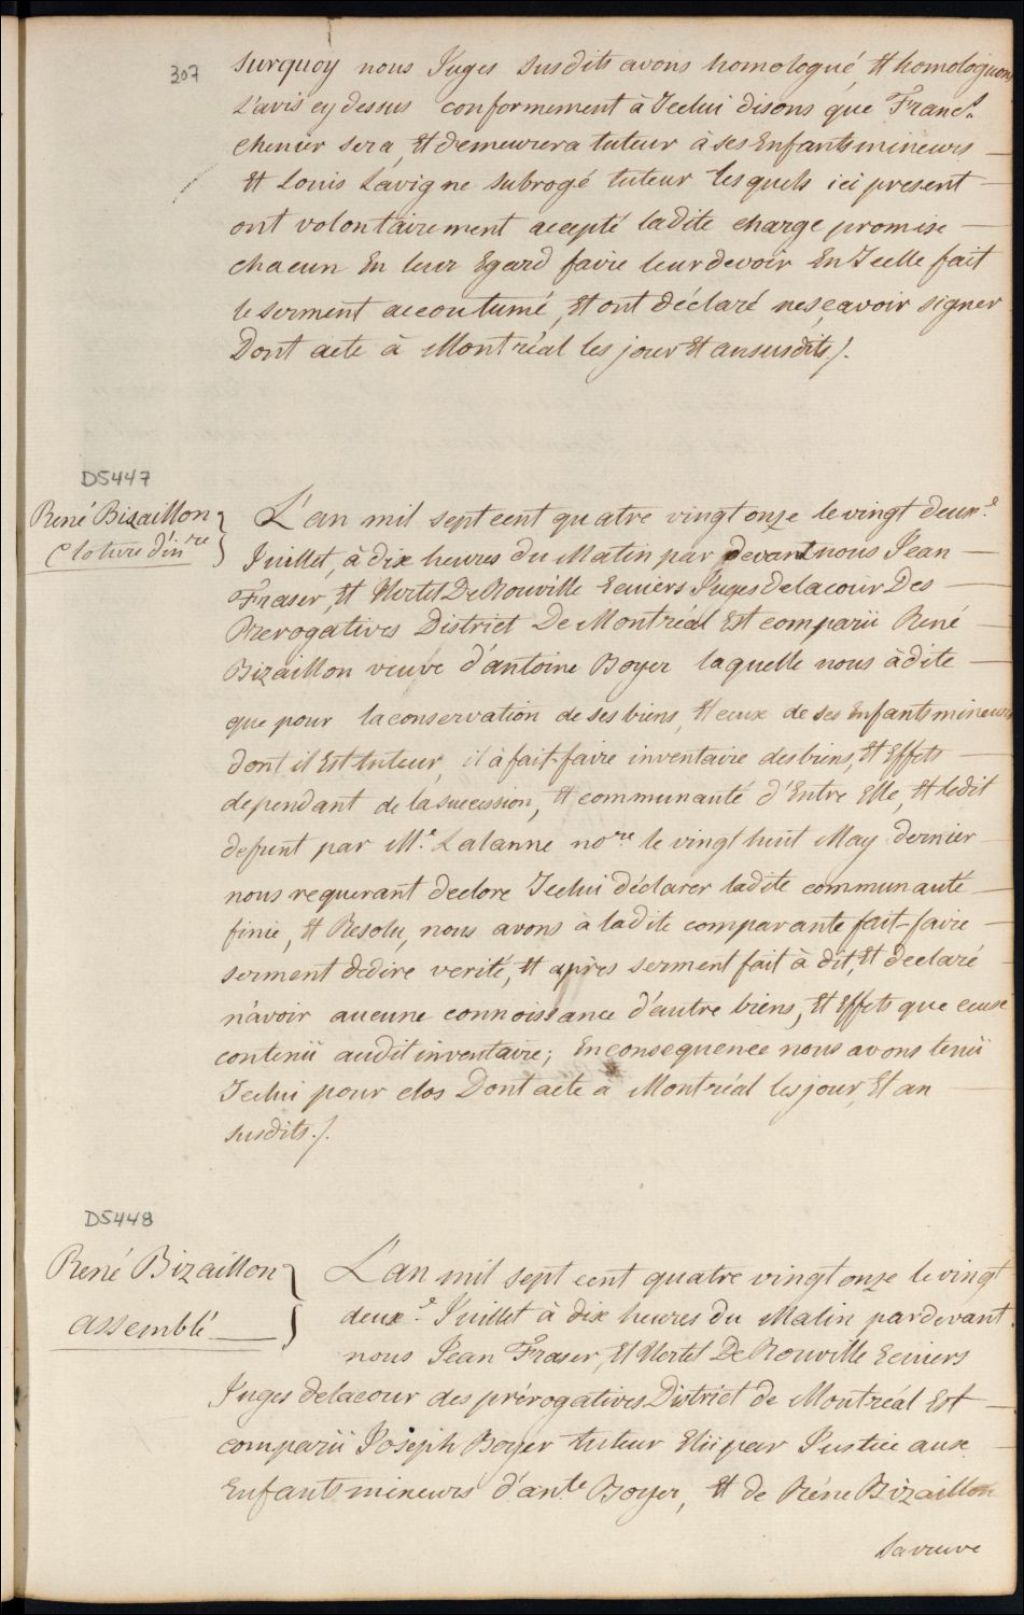 307
surquoy nous Juges susdits avons homologué, et homologuons
L'avis cy dessus conformement à Jcelui disons que Franc.s
chenier sera, et demeurera tuteur à ses Enfants mineurs —
et Louis Lavigne subrogé tuteur lesquels ici present —
ont volontairement accepté ladite charge promise —
chacun En leur Egard faire leur devoir En Jcelle fait
le serment accoutumé, et ont déclaré ne sçavoir signer
Dont acte à Montréal les jour et an susdits ./.
D5447
René Bizaillon
Cloture d'in.re
L'an mil sept cent quatre vingt onze le vingt deux.e
Juillet, à dix heures du Matin par devant nous Jean —
Fraser, et Hertel De Rouville Ecuiers Juges de la cour Des —
Prerogatives District De Montréal Est comparü René —
Bizaillon veuve d'antoine Boyer laquelle nous à dite —
que pour la conservation de ses biens, et ceux de ses Enfants mineurs
dont il Est tuteur, il à fait-faire inventaire des biens, et Effets —
dependant de la succession, et communauté d'Entre Elle, et ledit
defunt par M.e Lalanne no.re le vingt huit May dernier —
nous requerant declore Jcelui déclarer ladite communauté —
finie, et Resolu, nous avons à ladite comparante fait-faire —
serment dedire verité, et après serment fait à dit, et declaré —
n'avoir aucune connoissance d'autre biens, et Effets que ceux
contenü audit inventaire; En consequence nous avons tenü
Jcelui pour clos Dont acte a Montréal les jour, et an
susdits ./.
D5448
René Bizaillon
assemblé
L'an mil sept cent quatre vingt onze le vingt
deux.e Juillet à dix heures du Matin pardevant
nous Jean Fraser, et Hertel De Rouville Ecuiers
Juges de la cour des prérogatives District de Montréal Est —
comparü Joseph Boyer tuteur Elü par Justice aux —
Enfants mineurs d'an.te Boyer, et de Réne Bizaillon
sa veuve